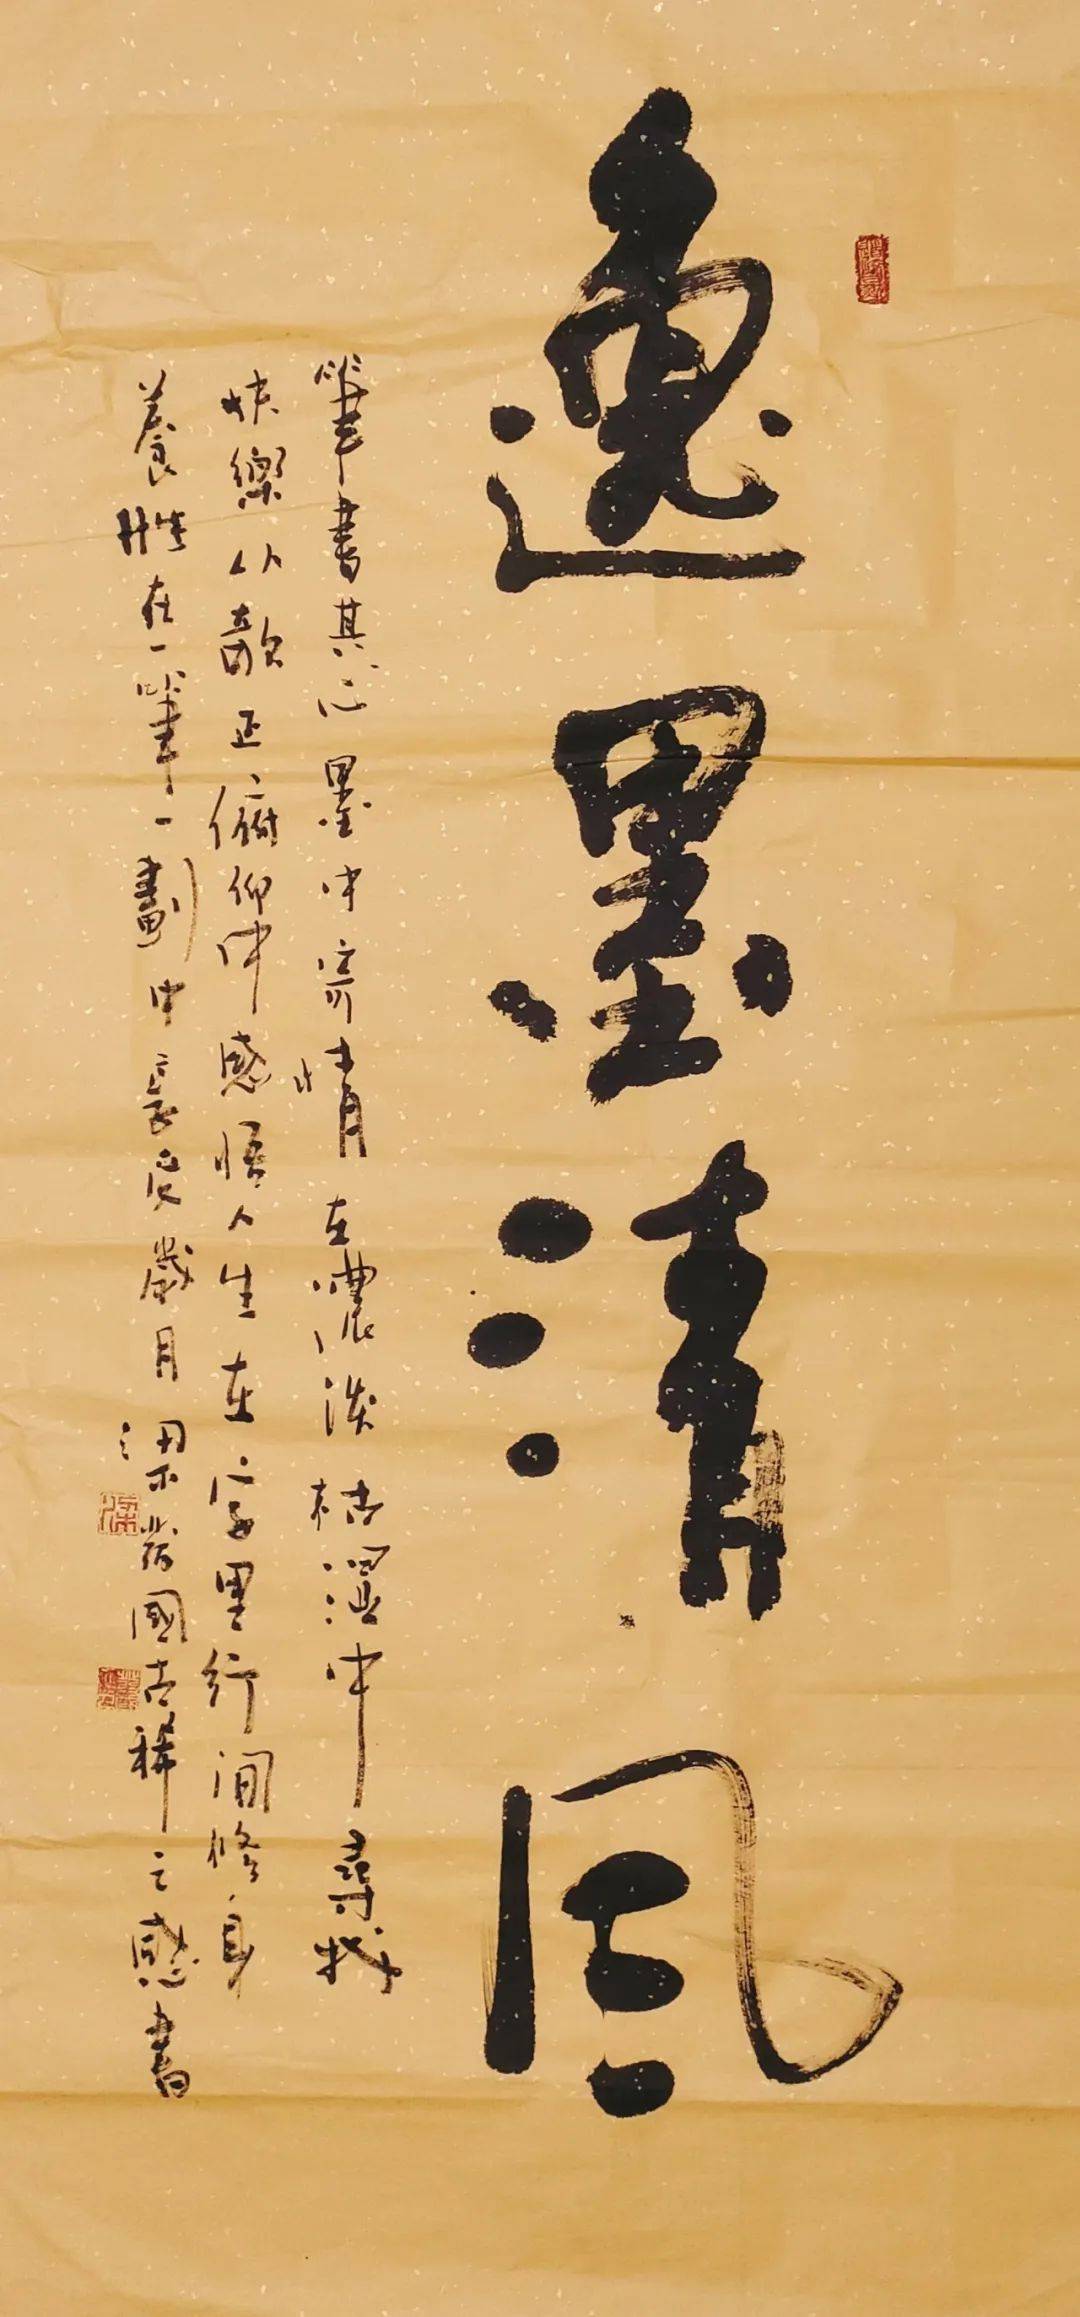 逸墨清风
筆書其心墨中寄情在濃淡枯濕中尋找
快樂从欹正俯仰中感悟人生在字里行间修身
養性在一筆一劃中享受歲月梁崗國古稀之感書